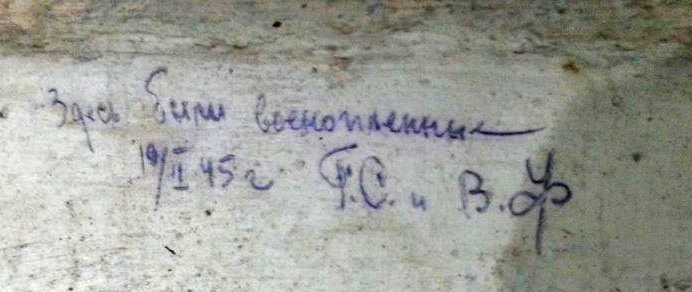 Здесь были военнопленные
19/II 45 г Г.С. и В.